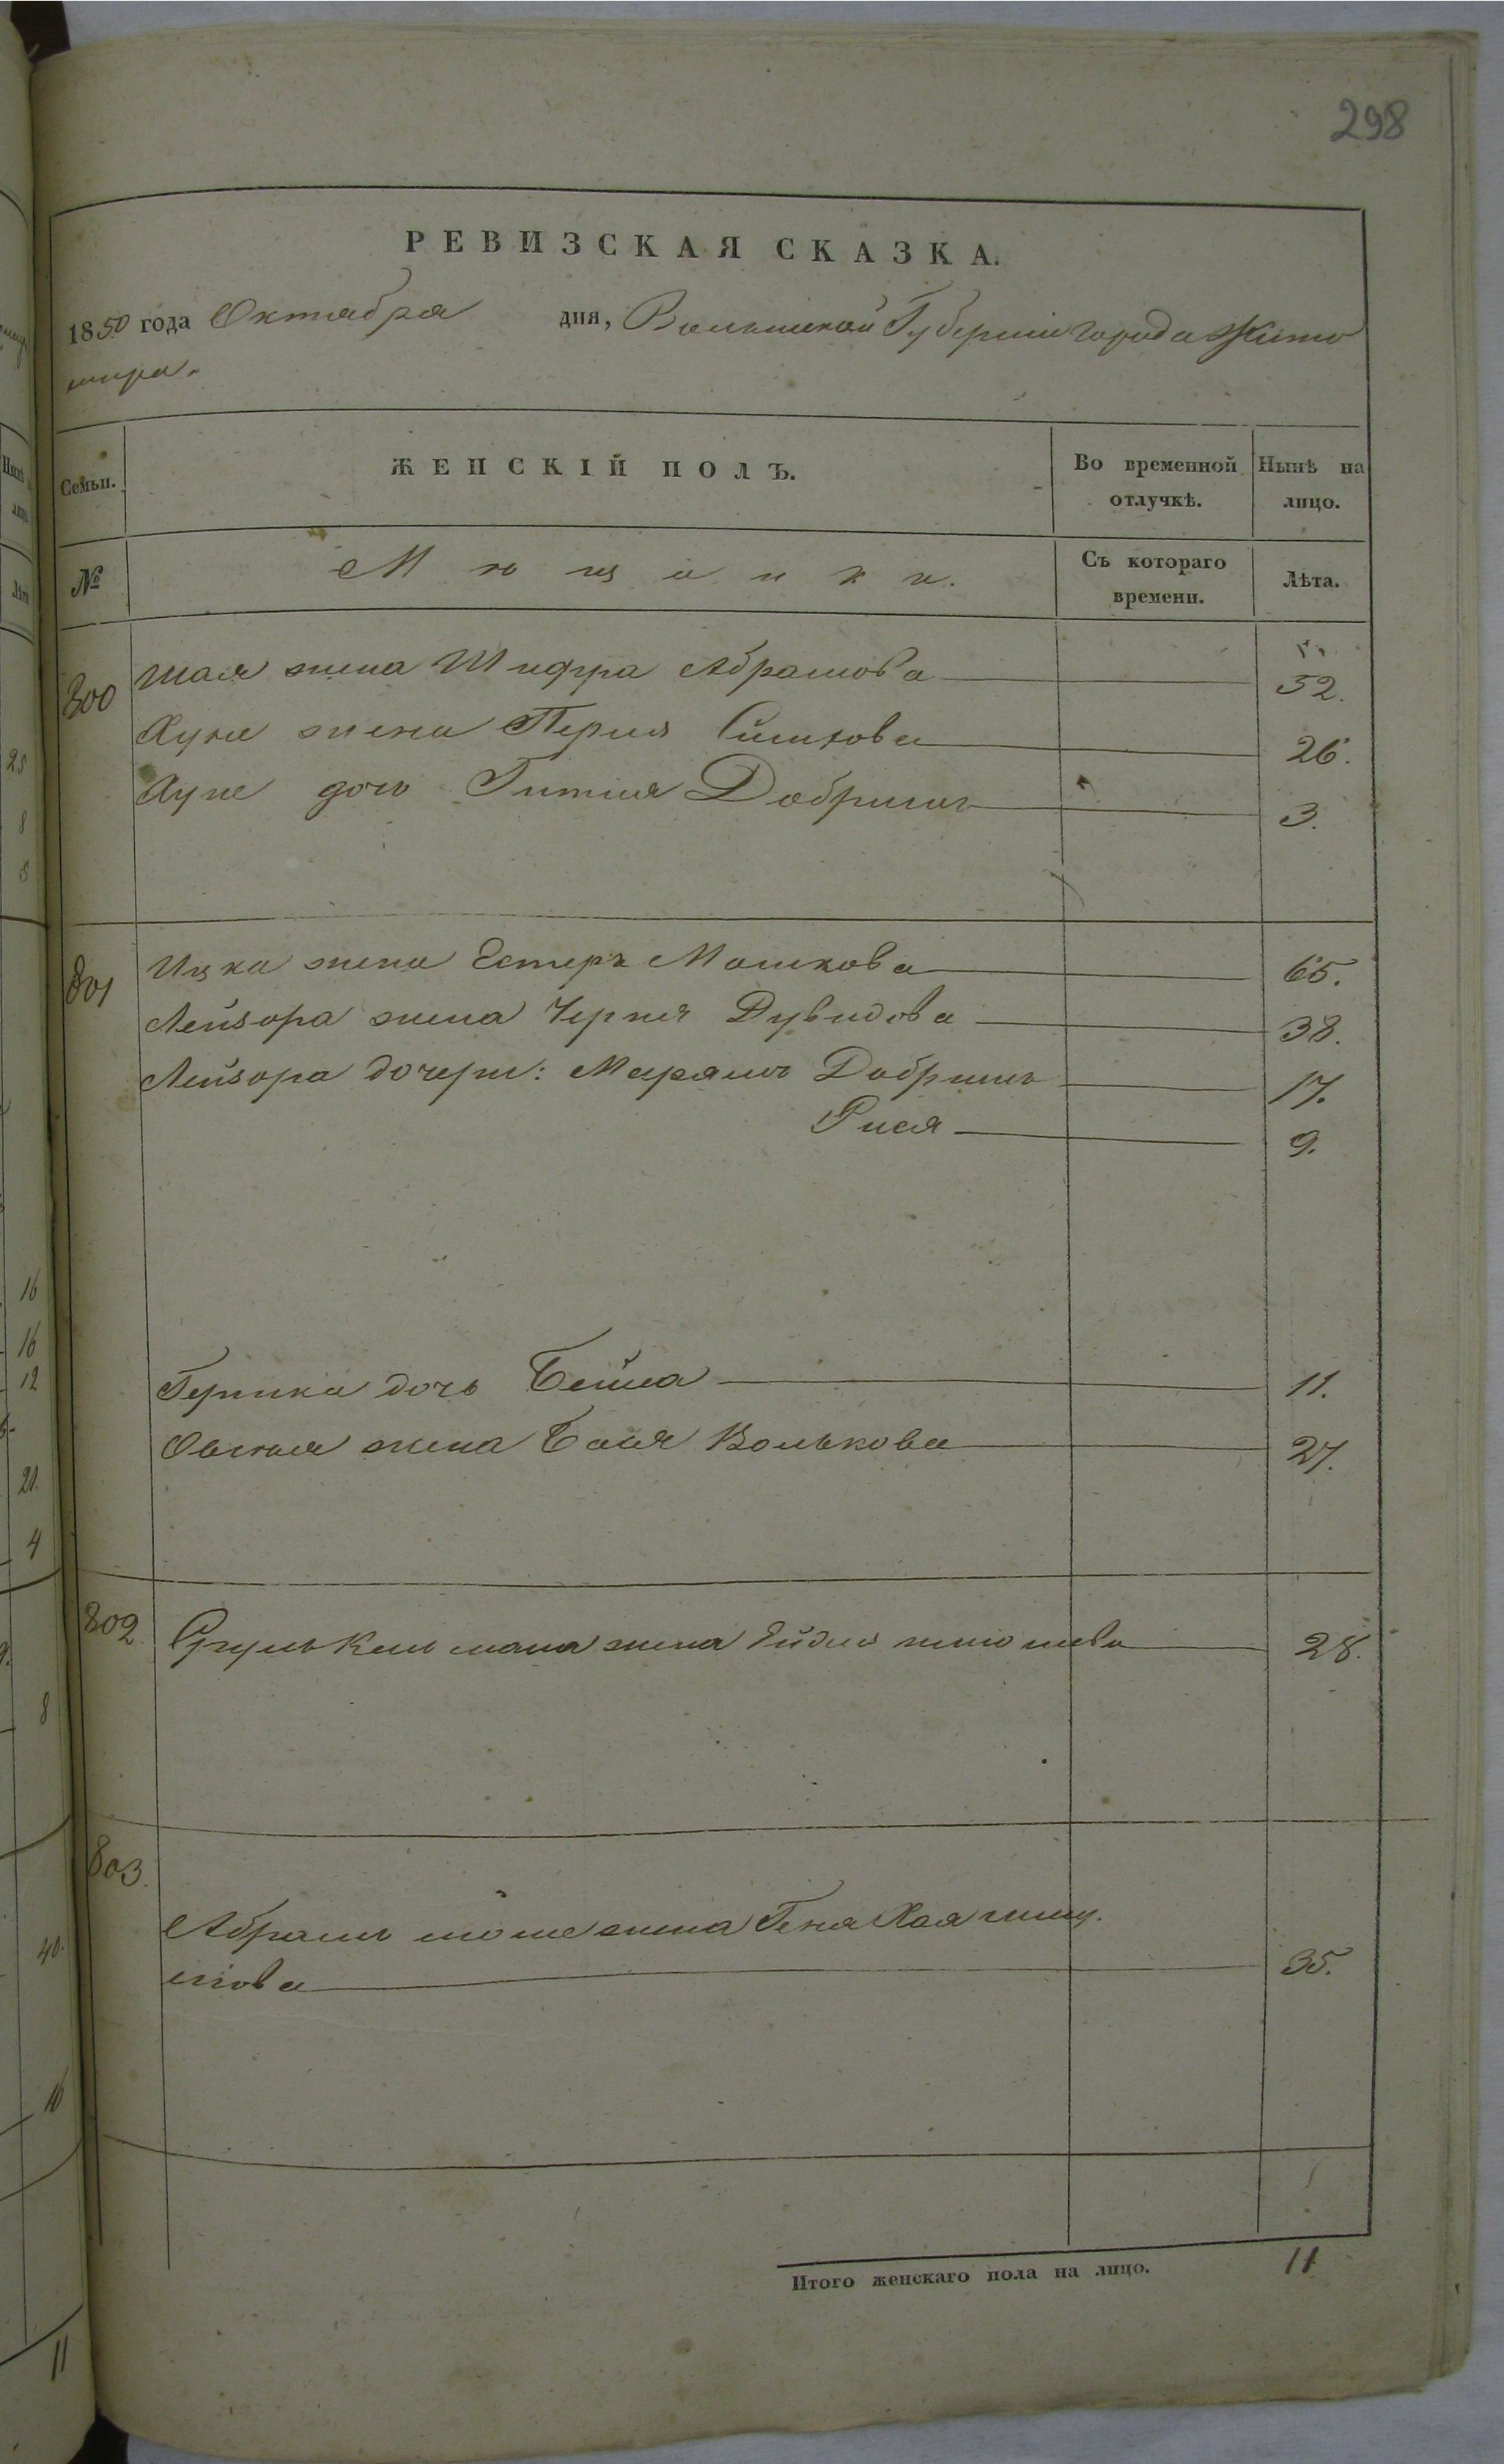 298
РЕВИЗСКАЯ СКАЗКА.
1850 года Октября дня, Волынской Губерніи города Жито
мира.
Семьи.
ЖЕНСКІЙ ПОЛЪ.
Во временной
отлучкѣ.
Нынѣ на
лицо.
№
Мѣщанки.
Съ котораго
времени.
Лѣта.
800
Шая жена Шифра Абрамова 52.
жена Перля 26.
дочь Гитля Добришъ 3.
801
Ицка жена Естеръ Мошкова 65.
Лейзора жена Черня Дувидова 38.
Лейзора дочери: Марямъ Добришъ 17.
Рися 9.
Гершка дочь Бейла 11.
Овсея жена Бася Волькова 27.
802.
Сруль Кельмана жена 28.
803.
Абрамъ жена Геня Хая
мова 35.
Итого женскаго пола на лицо. 11
25
8
5
16
16
12
21.
4
8
40.
16
11